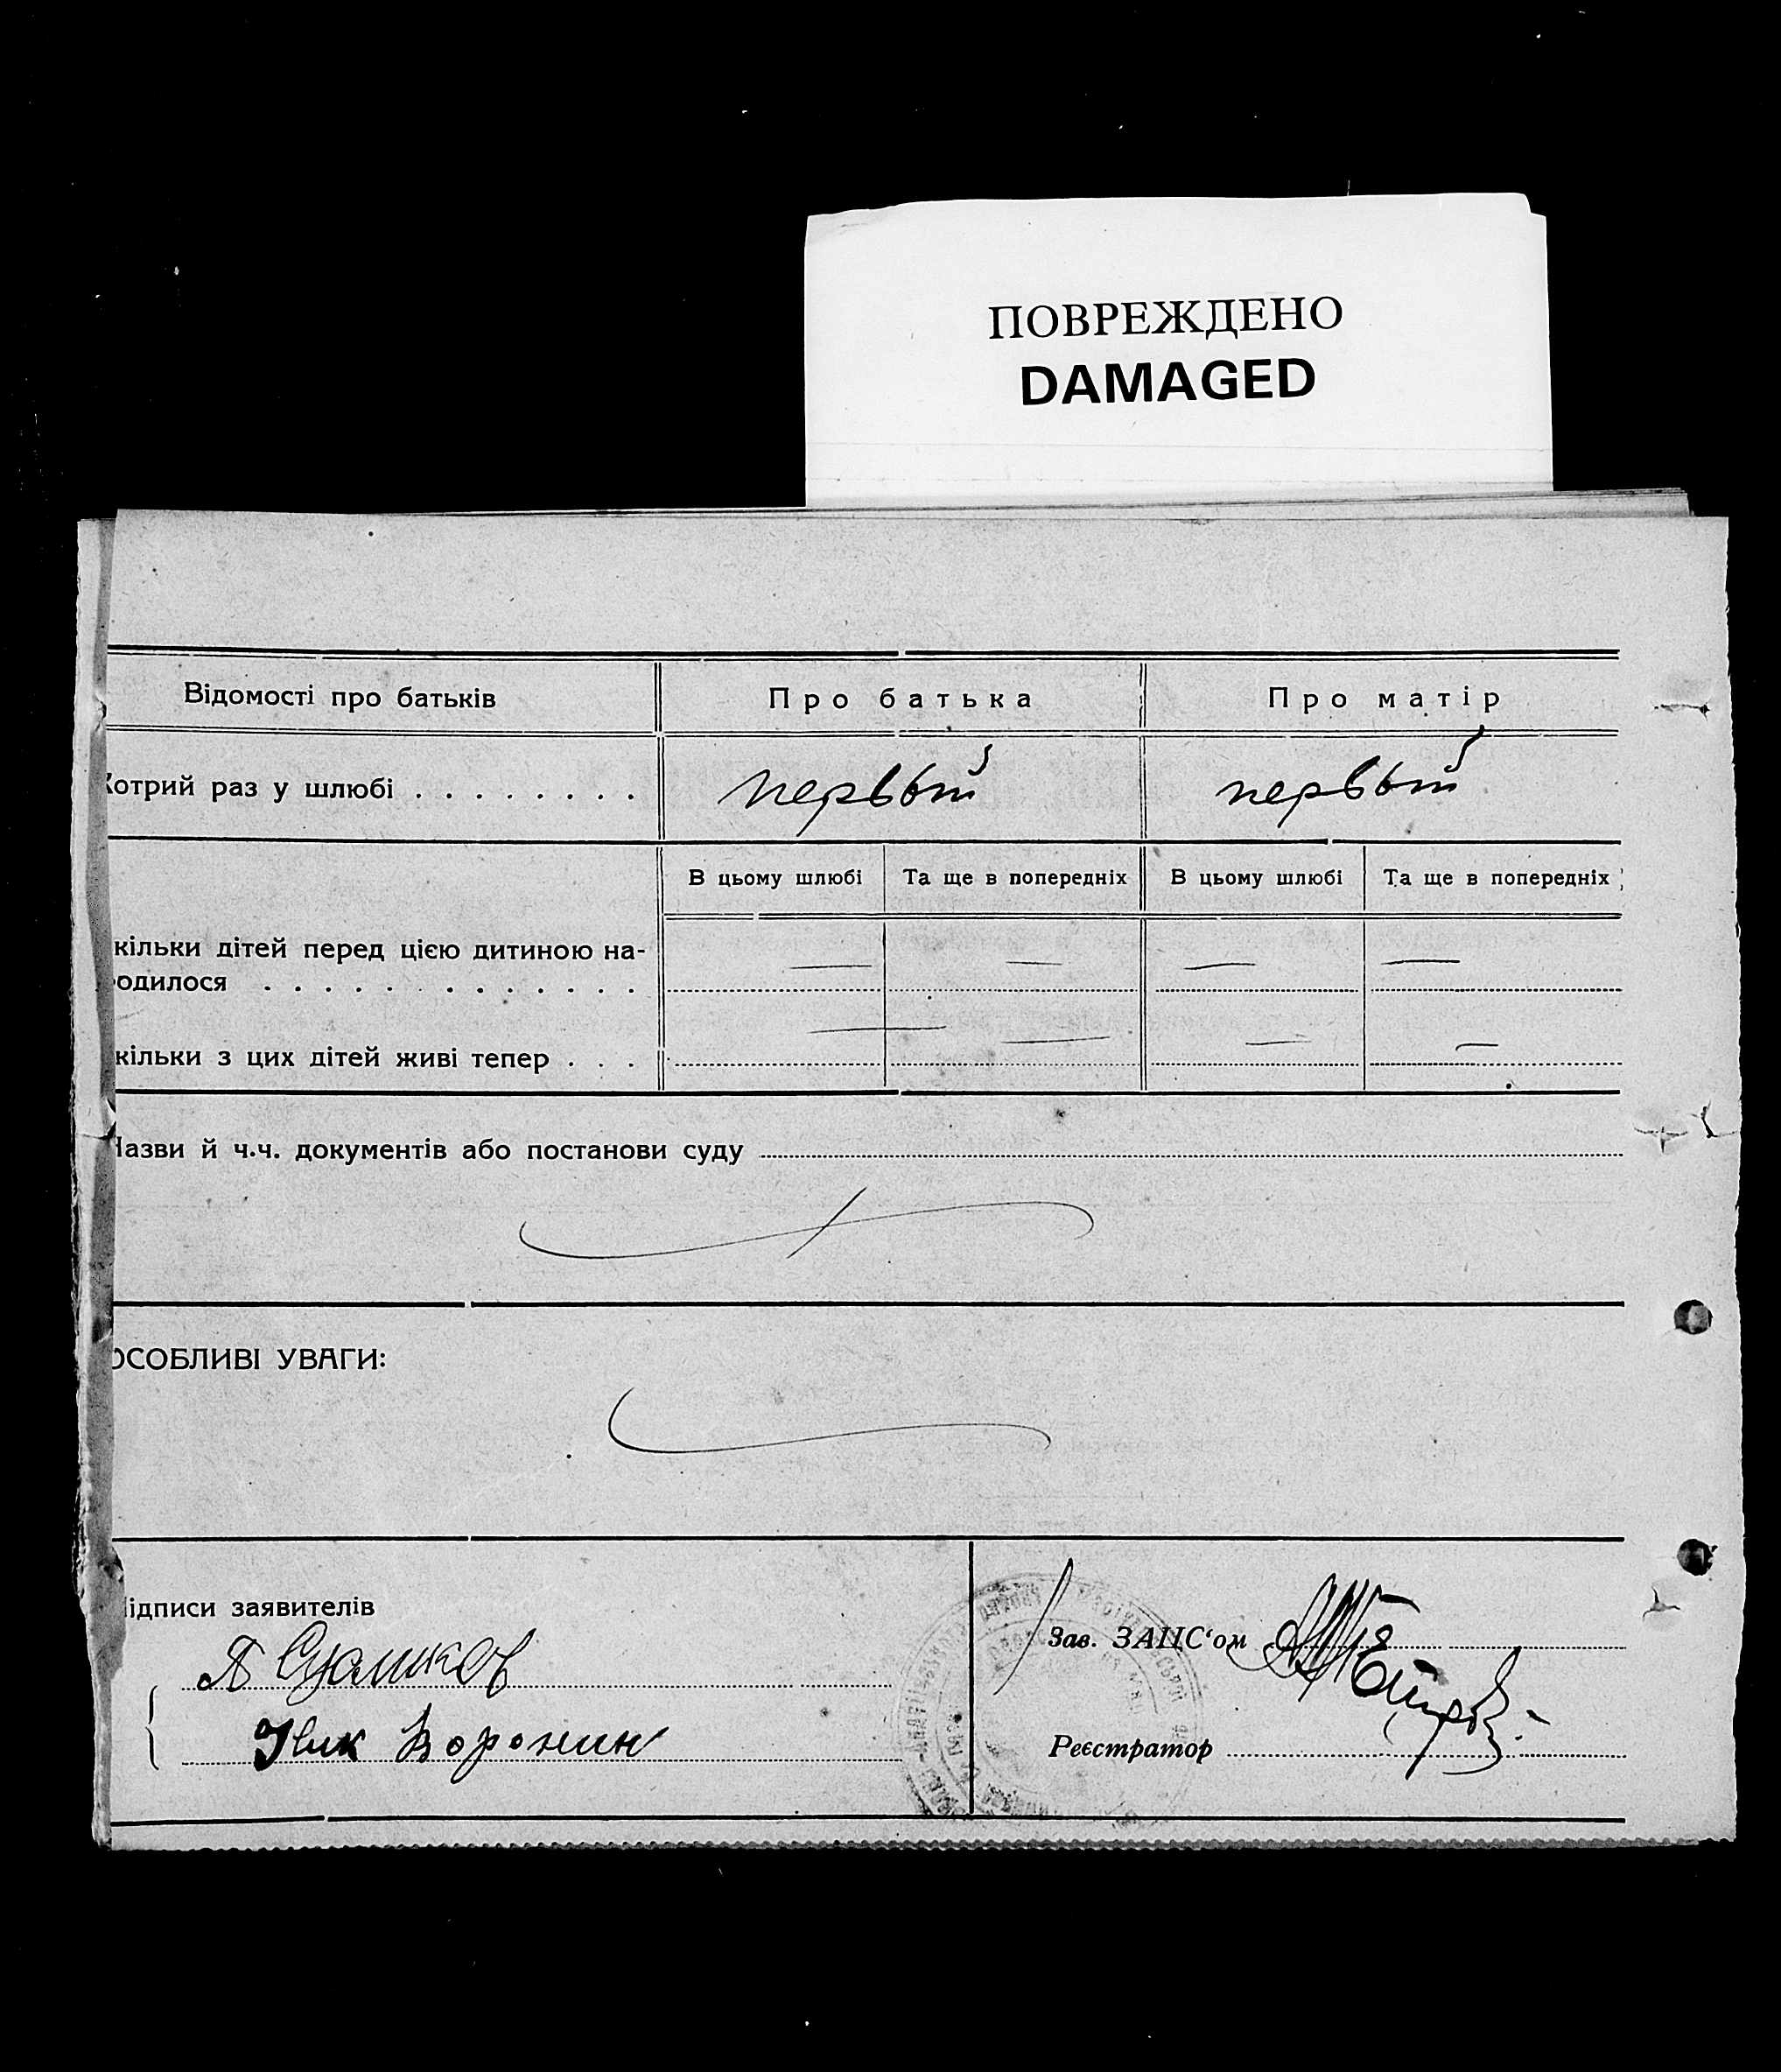 ПОВРЕЖДЕНО
DAMAGED
Відомості про батьків Про батька Про матір
Котрий раз у шлюбі . . . . . . . . первый первый
В цьому шлюбі Та ще в попередніх В цьому шлюбі Та ще в попередніх
кільки дітей перед цією дитиною на-
родилося . . . . . . . . . . . . . — — — —
кільки з цих дітей живі тепер . . . — — — —
Назви й ч.ч. документів або постанови суду
ОСОБЛИВІ УВАГИ:
ідписи заявителів
Зав. ЗАЦС‘ом
Воронин
Реєстратор